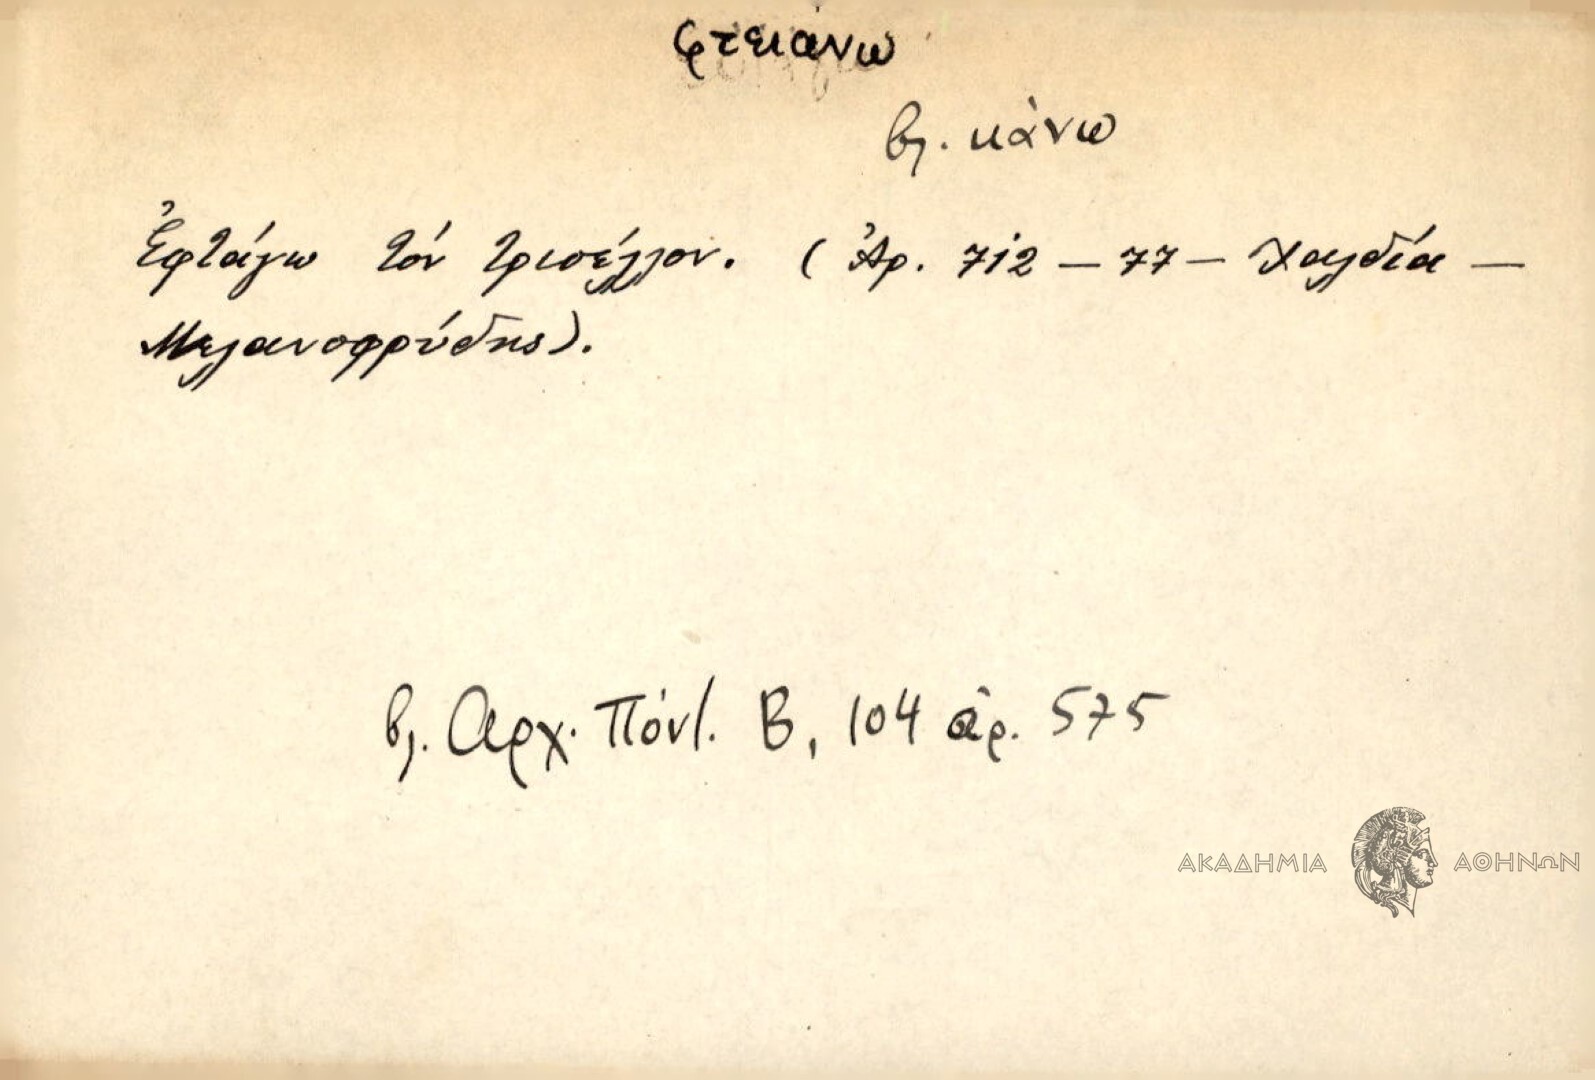 φτειάνω
βλ. κάνω
Ἐφτάγω τόν τρισέλλον. (Ἀρ. 712 – 77 – Χαλδία –
Μελανοφρύδης).
βλ. Αρχ. Πόντ. Β, 104 ἀρ. 575
ΑΚΑΔΗΜΙΑ ΑΘΗΝΩΝ